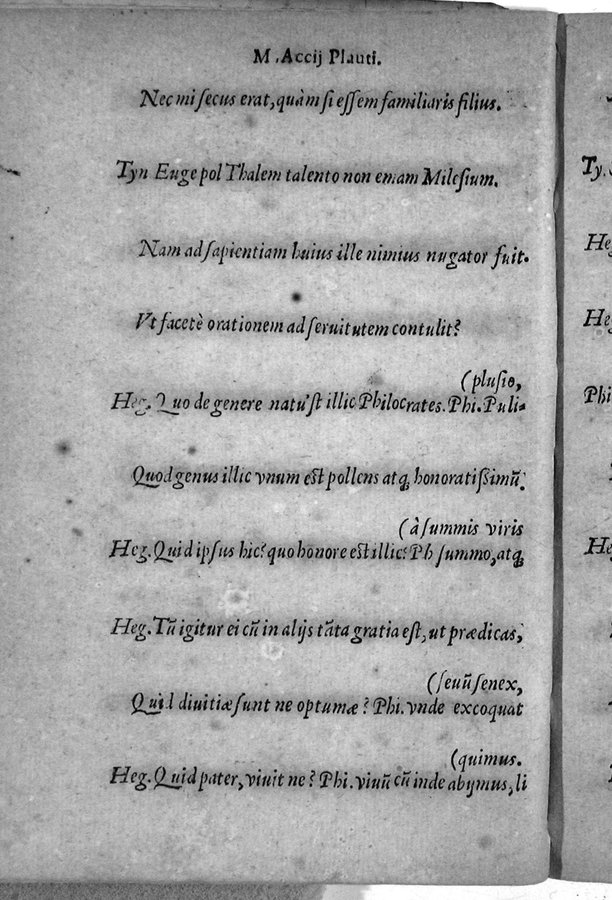 M. Accij Plauti.
Nec mi secus erat, quàm si essem familiaris filius.
Tyn Euge pol Thalem talento non emam Milesium.
Nam ad sapientiam huius ille nimius nugator fuit.
Vt facetè orationem ad seruitutem contulit?
(plusio,
Heg. Quo de genere natu'st illic Philocrates. Phi. Puli-
Quod genus illic vnum est pollens atq; honoratissimũ.
(à summis viris
Heg. Quid ipsus hic? quo honore est illic? Ph summo, atq;
Heg. Tũ igitur ei cũ in alijs tãta gratia est, ut prædicas,
(seuũ senex,
Quid diuitiæ sunt ne optumæ? Phi. vnde excoquat
(quimus.
Heg. Quid pater, viuit ne? Phi. viuũ cũ inde abymus, li
Ty.
Heg
Heg
Phi
Heg